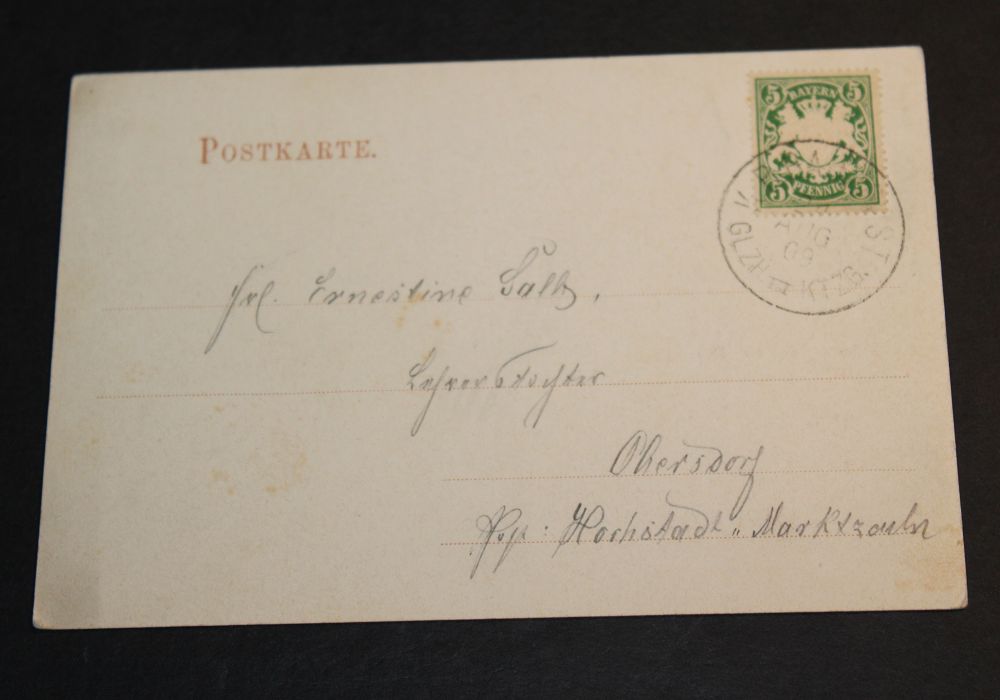 POSTKARTE.
5 BAYERN 5
5 PFENNIG 5
AUG
GLZH KITZG.
Frl. Ernestine
Lehrerstochter
Obersdorf
Hochstadt „ Marktzeuln